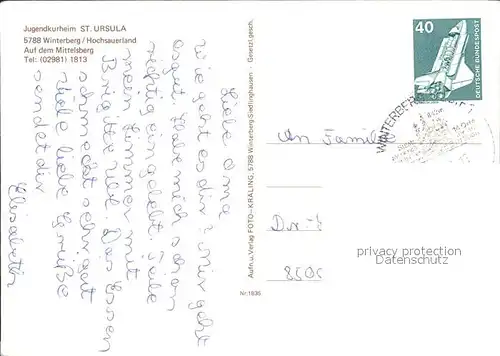 Jugendkurheim ST. URSULA
5788 Winterberg / Hochsauerland
Auf dem Mittelsberg
Tel: (02981) 1813
Liebe Oma
wie geht es dir? Mir geht
es gut. Habe mich schon
richtig eingelebt. Teile
mein Zimmer mit
Brigitte und. Das Essen
schmeckt sehr gut
Viele liebe Grüße
sendet dir
Elisabeth
Aufn. u. Verlag FOTO-KRÄLING, 5788 Winterberg-Siedlinghausen · Gesetzl. gesch.
Nr. 1836
40
DEUTSCHE BUNDESPOST
WINTERBERG
An Familie
850
privacy protection
watermark